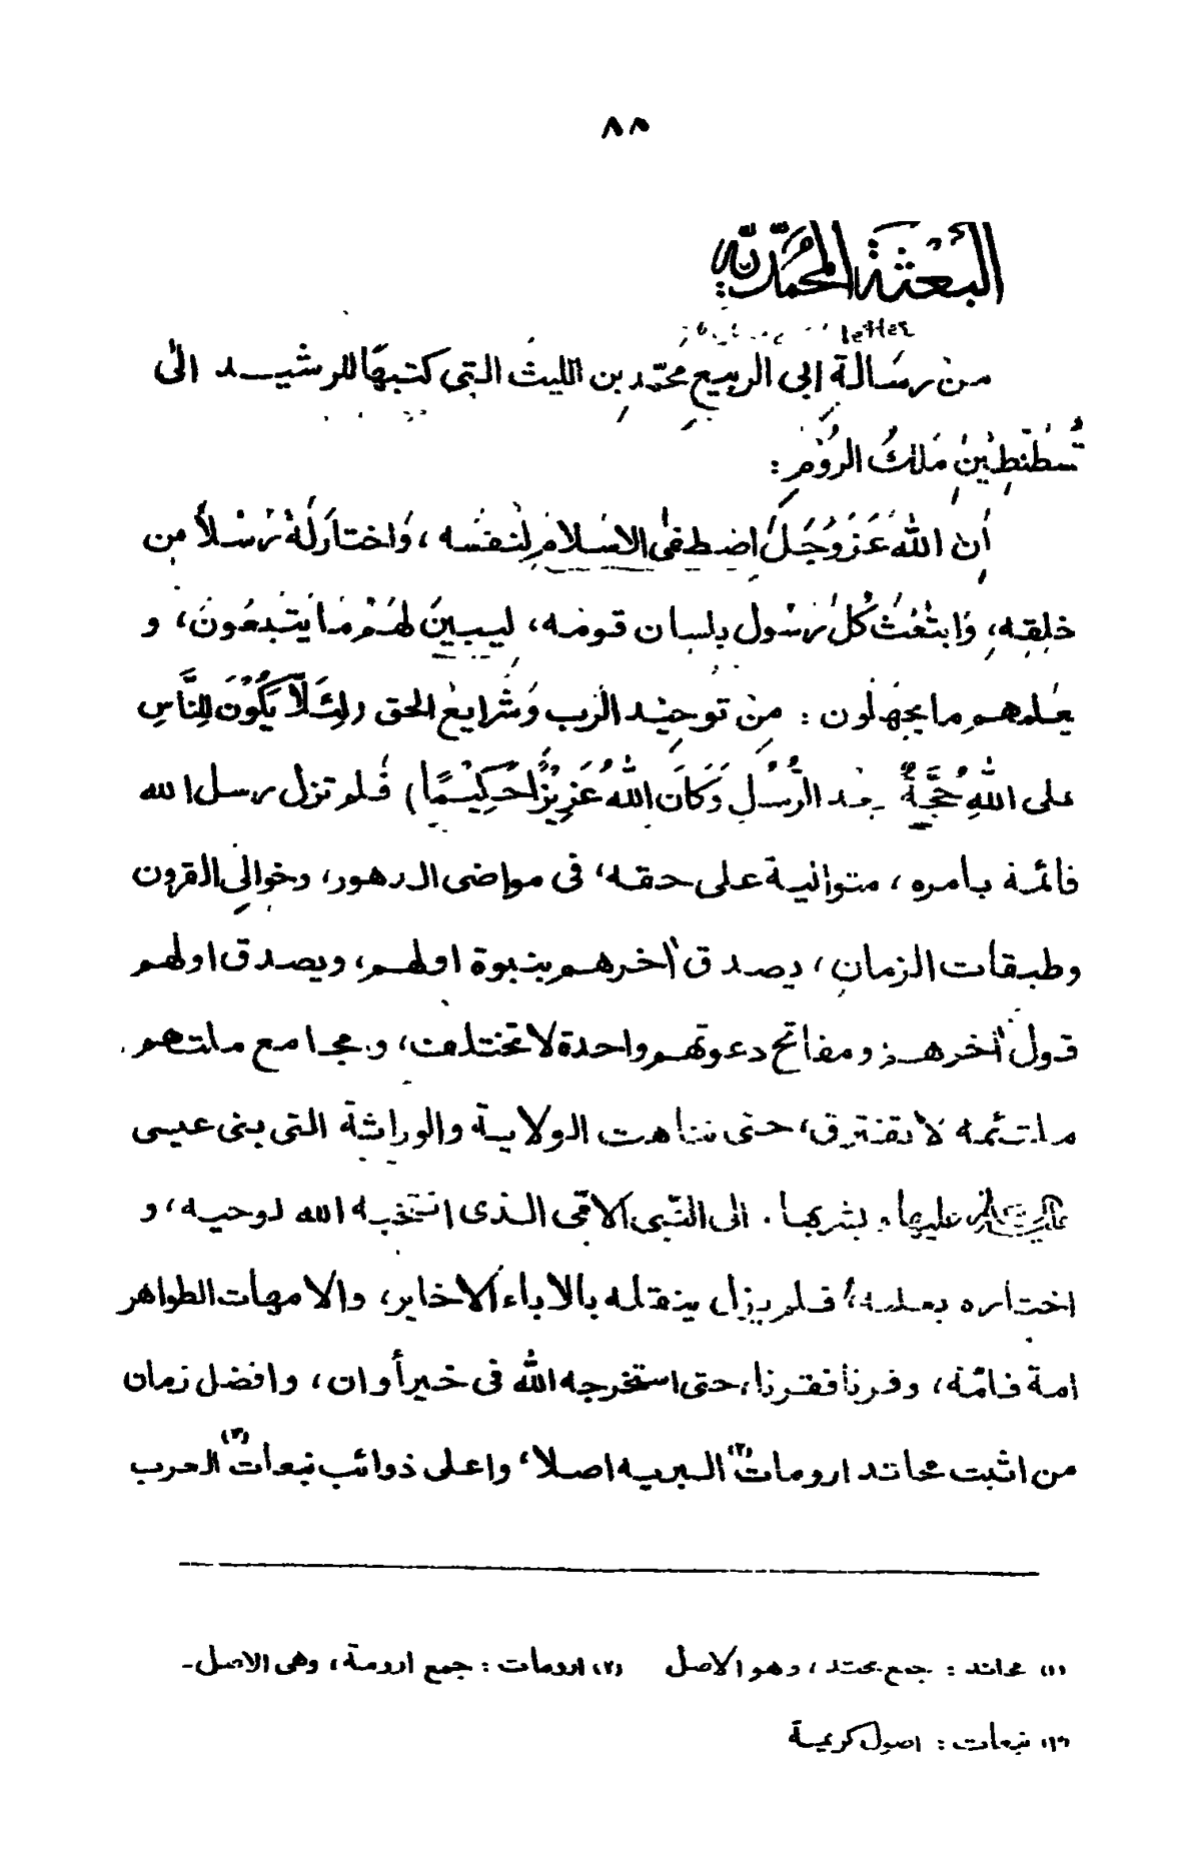 ٨٨
البعثة المحمدية
letter
من رسالة ابى الربيع محمّد بن الليث التى كتبها للرشيد الى
قسطنطين ملك الروم :
أن الله عَزّ وَجَلّ اصطفى الاسلام لنفسه ، واختار له رسلاً من
خلقه، وابتعث كل رسول بلسان قومه، ليبين لهم ما يتبعون، و
يعلمهم ما يجهلون : من توحيد الرب وشرايع الحق (لِئَلّا يَكُوْنَ لِلنَّاسِ
على اللهِ حُجَّةٌ بعد الرُّسُلِ وَكَانَ اللهُ عَزِيْزًا حَكِيْمًا) فلم تزل رسل الله
قائمة بامره ، متوالية على حقه، فى مواضى الدهور، وخوالى القرون
وطبقات الزمان ، يصدق آخرهم بنبوة اولهم، ويصدق اولهم
قول آخرهم ومفاتح دعوتهم واحدة لا تختلف، ومجامع ملتهم
ملتئمة لا تفترق، حتى تناهت الولاية والوراثة التى بنى عيسى
عليها وبشر بها . الى النّبى الامّى الذى انتخبه الله لوحيه، و
اختاره بعلمه، فلم يزل ينقله بالاباء الاخاير، والامهات الطواهر
امة فامّة، وقرنا فقرنا، حتى استخرجه الله فى خير أوان، وافضل زمان
من اثبت محاتد ارومات(٢) البرية اصلا، واعلى ذوائب نبعات(٣) العرب
(١) محاتد : جمع محتد ، وهو الاصل (٢) ارومات : جمع ارومة ، وهى الاصل ـ
(٣) نبعات : اصول كريمة